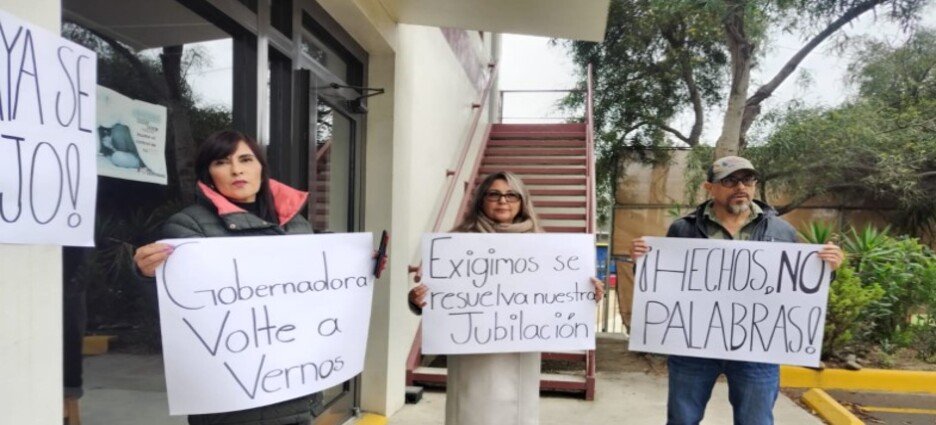 YA SE
JO!
Gobernadora
Volte a
Vernos
Exigimos se
resuelva nuestra
Jubilación
¡HECHOS, NO
PALABRAS!